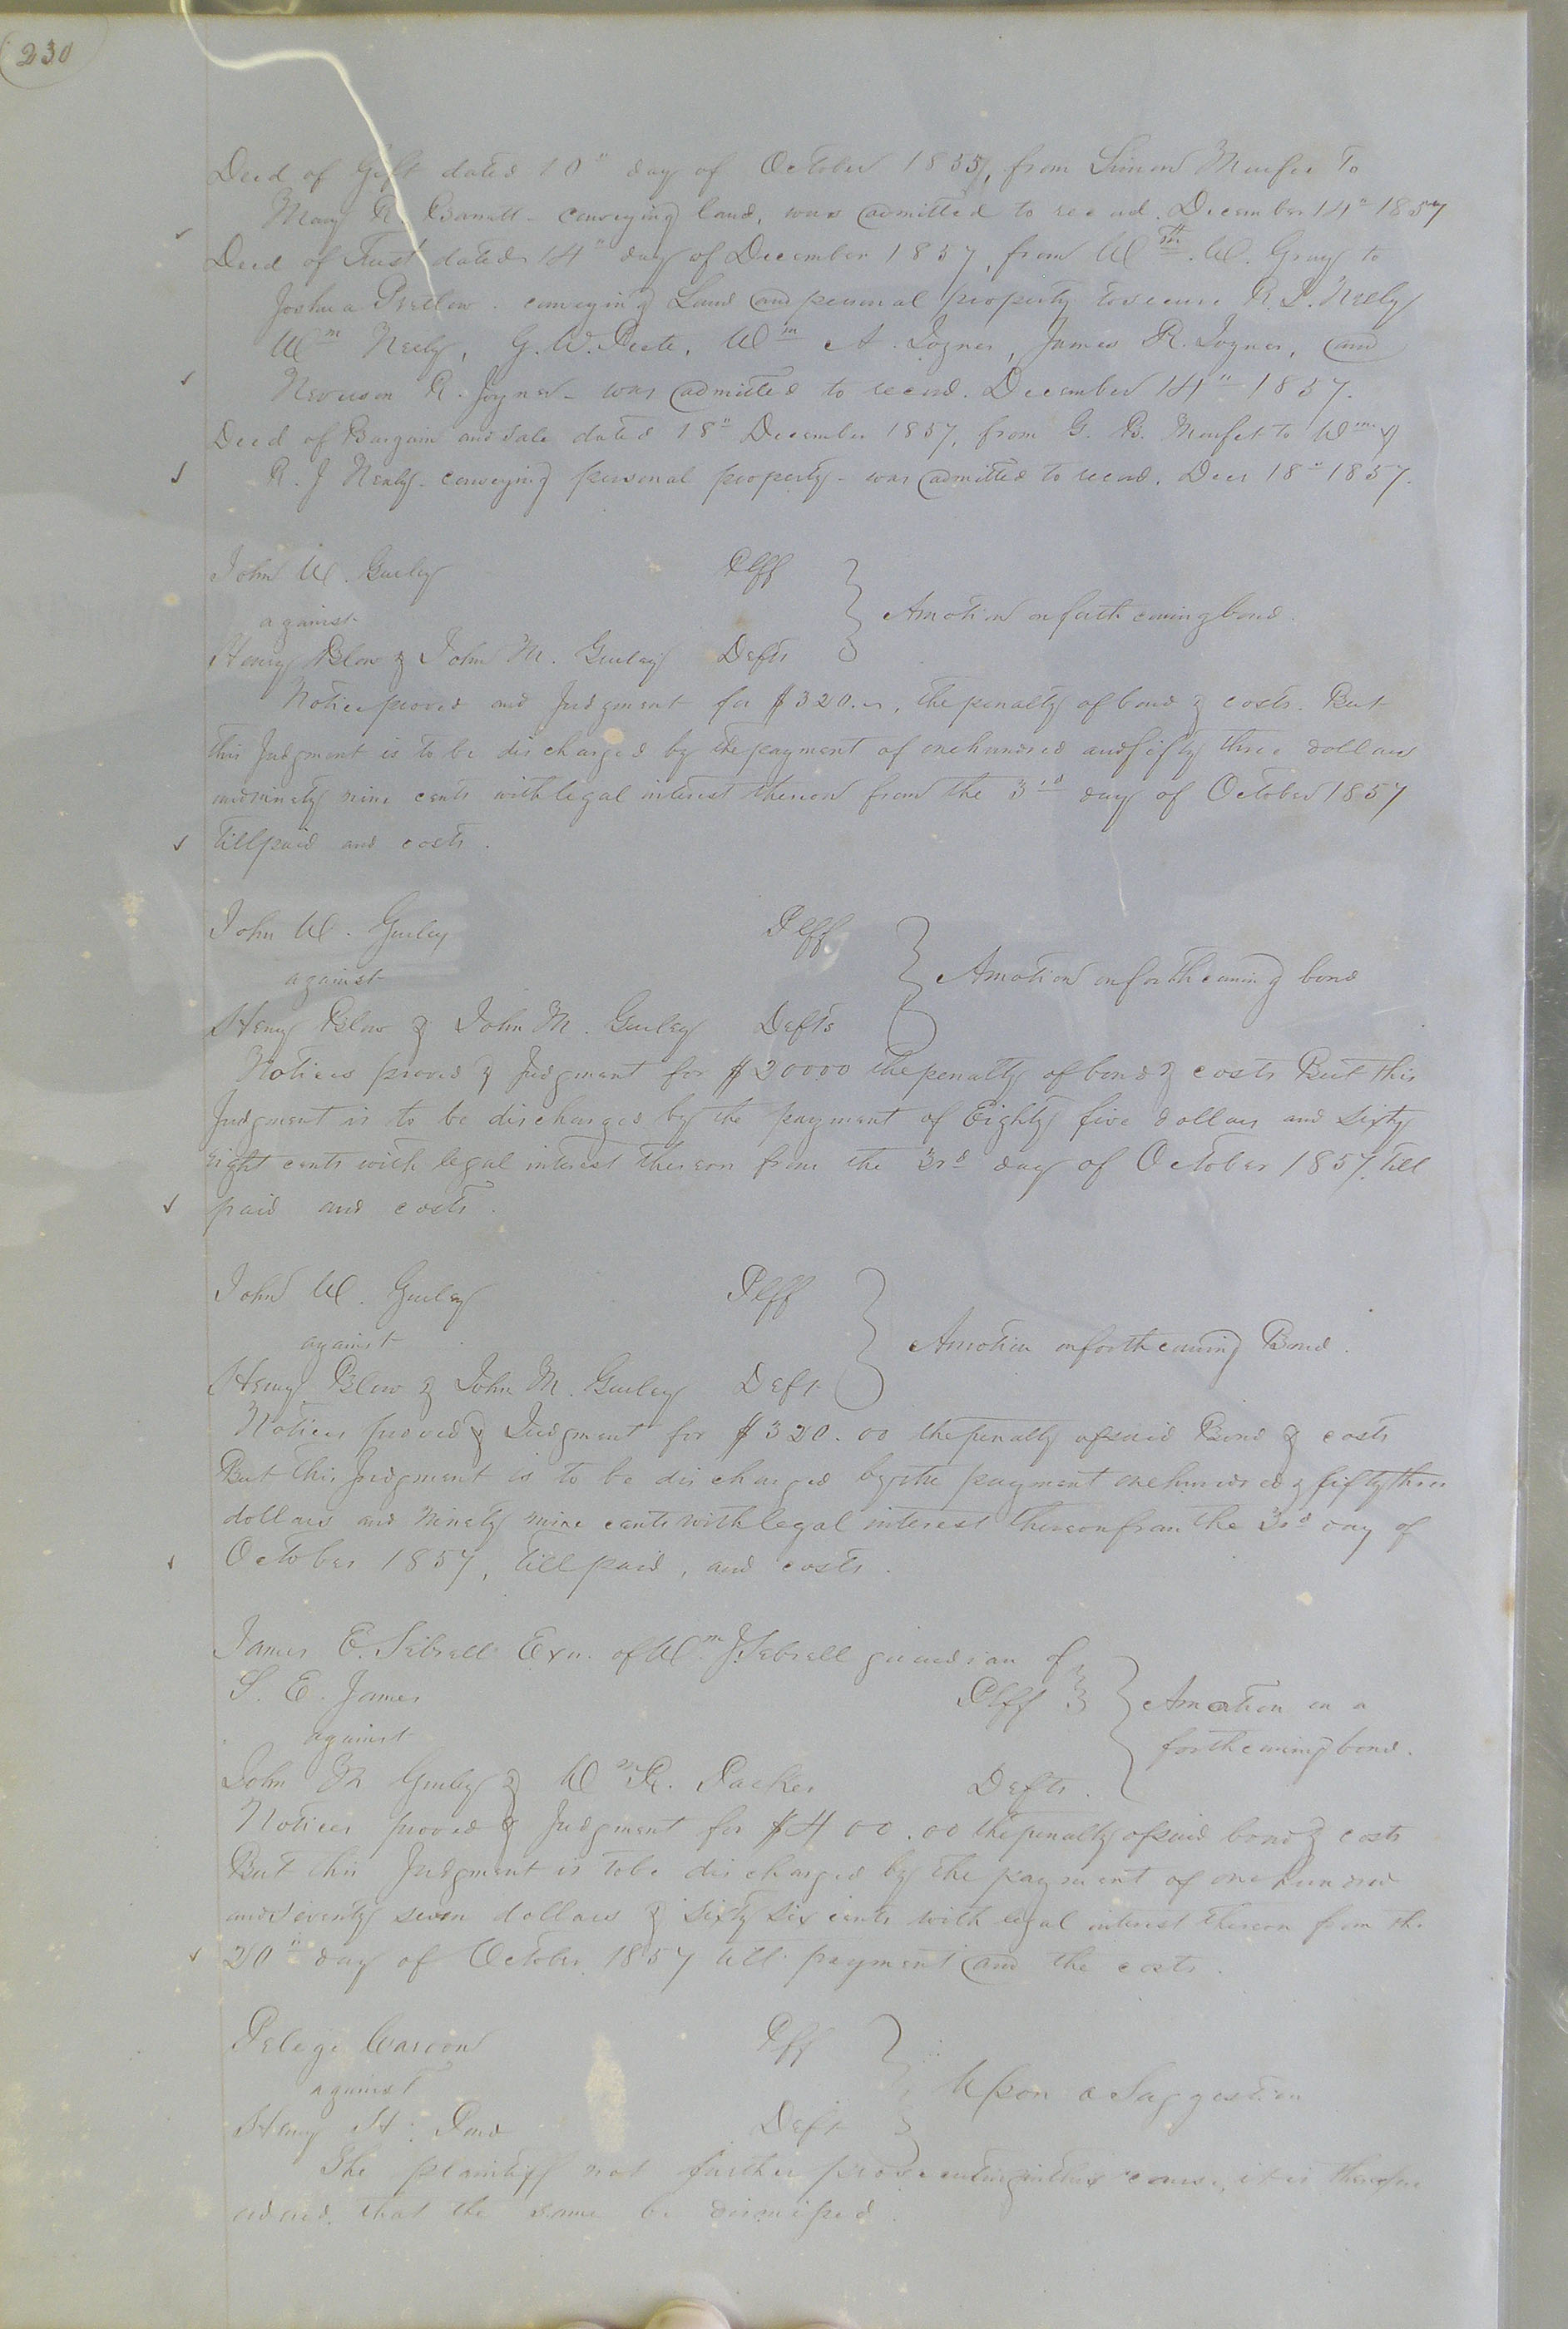 230
Deed of Gift dated 10" day of October 1855, from Simon Murfee To
Mary R. Barrett - conveying land, was admitted to record. December 14" 1857
Deed of Trust dated 14" day of December 1857, from Wm. W. Gray to
Joshua Pretlow. conveying Land and personal property to secure R. J. Neely
Wm Neely, G. W. Peete, Wm A. Joyner, James R. Joyner, and
R. Joyner - was admitted to record. December 14" 1857.
Deed of Bargain and sale dated 18" December 1857, from G. B. Murfee to Wm &
R. J Nealy - conveying personal property - was admitted to record. Decr 18" 1857.
John W. Gurley Plff
against
Henry Blow & John M. Gurley Defts } A motion on forth coming bond.
Notice proved and Judgment for $320.00, the penalty of bond & costs. But
this Judgment is to be discharged by the payment of one hundred and fifty three dollars
and ninety nine cents with legal interest thereon from the 3rd day of October 1857
till paid and costs.
John W. Gurley Plff
against
Henry Blow & John M. Gurley Defts } A motion on forth coming bond
Notices proved & Judgment for $200.00 the penalty of bond & costs But this
Judgment is to be discharged by the payment of Eighty five dollars and sixty
eight cents with legal interest thereon from the 3rd day of October 1857. till
paid and costs.
John W. Gurley Plff
against
Henry Blow & John M. Gurley Deft } A motion on forth coming Bond.
Notices proved & Judgment for $320.00 the penalty of said Bond & costs
But this Judgment is to be discharged by the payment one hundred & fifty three
dollars and Ninety nine cents with legal interest thereon from the 3rd day of
October 1857, till paid, and costs.
James E. Sebrell Exr. of Wm J. Sebrell guardian of
S. E. James Plff } A motion on a
against forth coming bond.
John M Gurley & Wm R. Parker Defts.
Notices proved & Judgment for $400.00 the penalty of said bond & costs
But this Judgment is to be discharged by the payment of one hundred
and seventy seven dollars & sixty six cents with legal interest thereon from the
20" day of October 1857 till payment and the costs.
Pelege Plff
against } Upon a Suggestion
Henry H. Deft
The plaintiff not further prosecuting in this cause, it is therefore
ordered, that the same be dismissed.